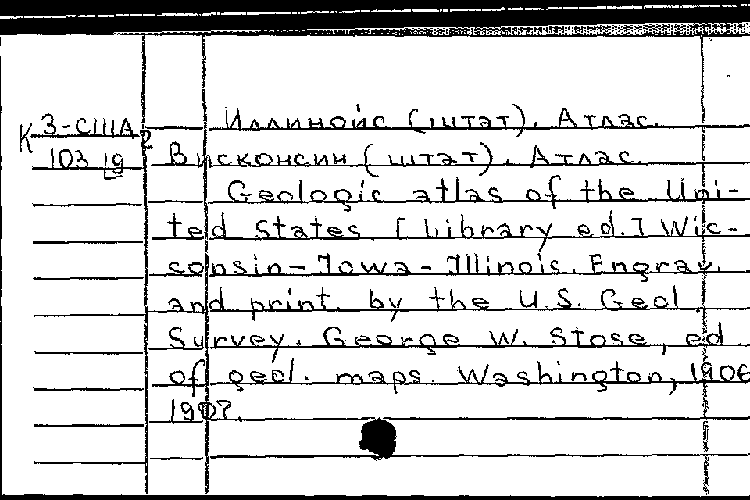 К 3-США2
103 19
Иллинойс (штат). Атлас.
Висконсин (штат). Атлас.
Geologic atlas of the Uni-
ted States [Library ed.] Wic-
consin-Iowa-Illinois. Engrav.
and print. by the U.S. Geol
Survey. George W. Stose, ed
of geol. maps. Washington, 1906
1907.